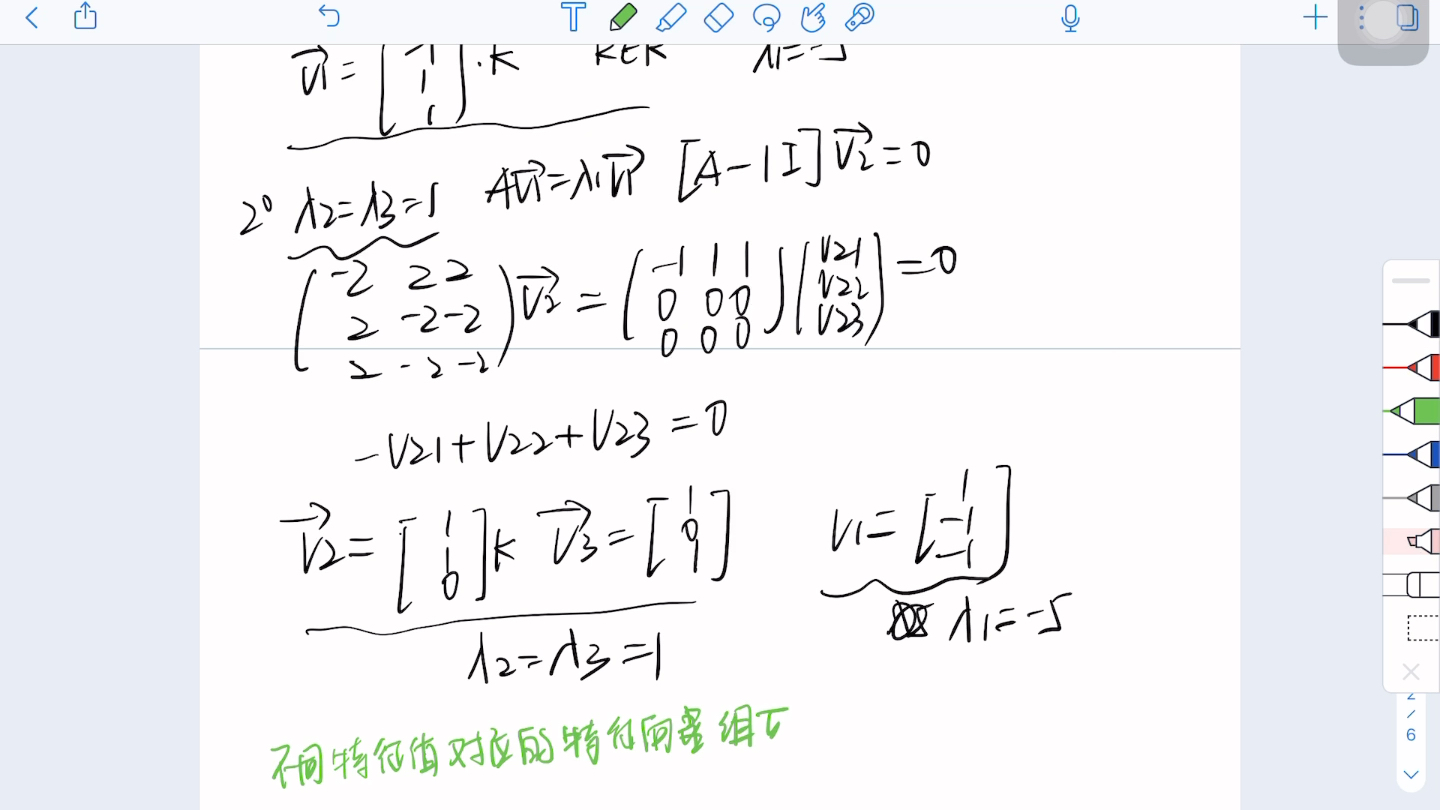 V1 = [-1 1 1] . K K∈R λ1 = -5
2° λ2 = λ3 = 1 AV1 = λ1V1 [A - 1I] V2 = 0
(-2 2 2
2 -2 -2
2 -2 -2) V2 = (-1 1 1
0 0 0
0 0 0) (V21
V22
V23) = 0
-V21 + V22 + V23 = 0
V2 = [1 1 0] K V3 = [1 0 1] V1 = [1 -1 -1]
λ2 = λ3 = 1 λ1 = -5
不同特征值对应的特征向量组
2
/
6